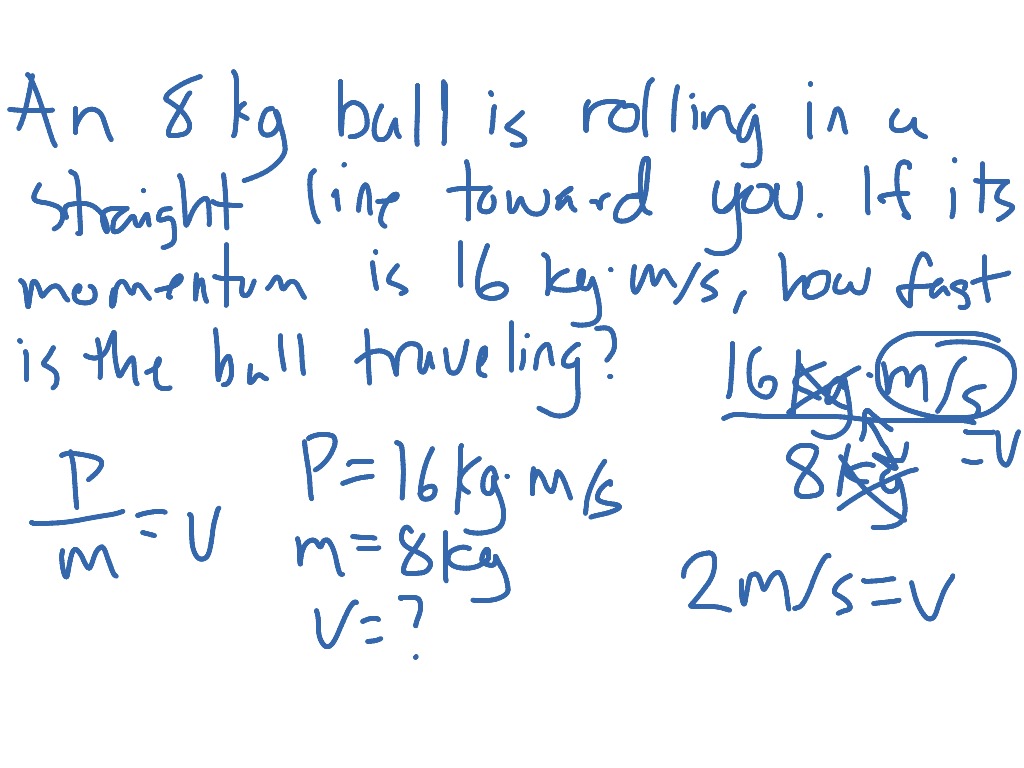 An 8 kg ball is rolling in a
straight line toward you. If its
momentum is 16 kg·m/s, how fast
is the ball traveling?
P/m = V
P = 16 kg·m/s
m = 8 kg
V = ?
16 kg·m/s / 8 kg = V
2 m/s = V